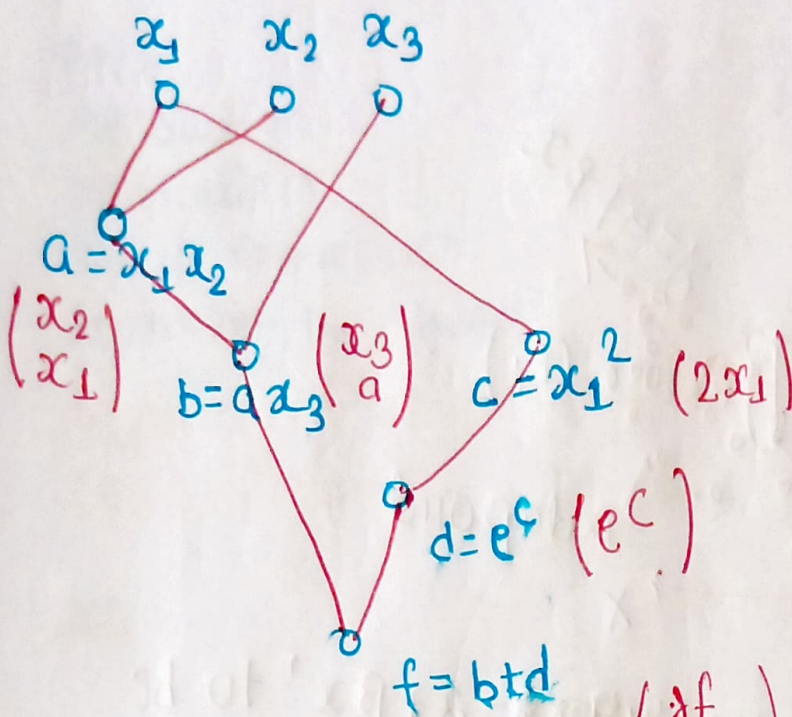 x₁ x₂ x₃
a = x₁ x₂
(x₂
x₁)
b = a x₃
(x₃
a)
c = x₁² (2x₁)
d = e^c (e^c)
f = b+d